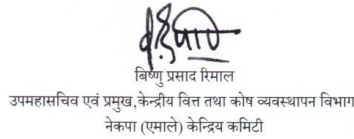 बिष्णु प्रसाद रिमाल
उपमहासचिव एवं प्रमुख,केन्द्रीय वित्त तथा कोष व्यवस्थापन विभाग
नेकपा (एमाले) केन्द्रिय कमिटी